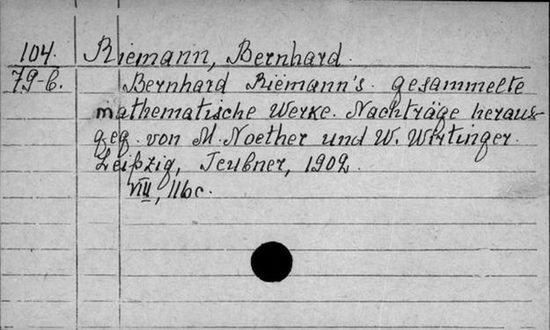 104. Riemann, Bernhard.
79-6. Bernhard Riemann's gesammelte
mathematische Werke. Nachträge heraus-
geg. von M. Noether und W. Wirtinger.
Leipzig, Teubner, 1902.
VIII, 116c.